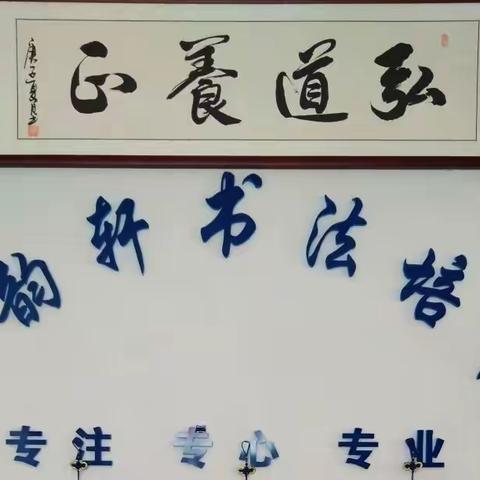 弘道養正
庚子夏月
韵轩书法培
专注 专心 专业